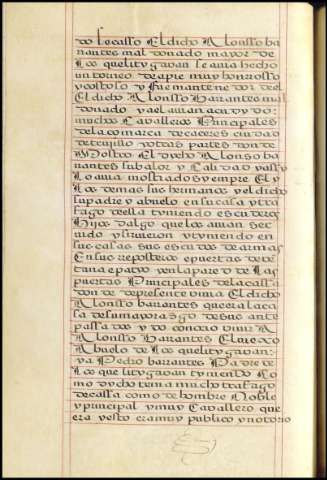 do se casso El dicho Alonsso ba
rrantes maldonado mayor de
Los que litygavan se avia hecho
un torneo de a pie muy honrrosso
y costoso y fue mantenedor del
El dicho Alonsso barrantes mal
donado y a el avian acudydo
muchos Cavalleros Principales
de la comarca de caceres ciudad
de trujillo y otras partes donde
mostro El dycho Alonso ba
rrantes su balor y Calidad y assy
Lo avia mostrado syempre El y
Los demas sus hermanos y el dicho
su padre y abuelo en su casa y tra
fago de ella tyniendo escuderos
hijos dalgo que los avian ser
uido y siruieron y tyniendo en
sus casas sus escudos de armas
En sus reposteros puertas de ve
tana e patyo y en la pared de Las
puertas Principales de la cassa
donde de presente vivia El dicho
Alonsso barrantes que era la ca
sa de su mayorazgo de sus ante
passados y do conocio vivir A
Alonsso barrantes Clavero
Abuelo de Los que litygavan
y a Pedro barrantes Padre de
Los que litygavan tyniendo Co
mo dycho tenia mucho trafago
de cassa como de hombre Noble
y principal y muy Cavallero que
era y esto era muy publico y notorio